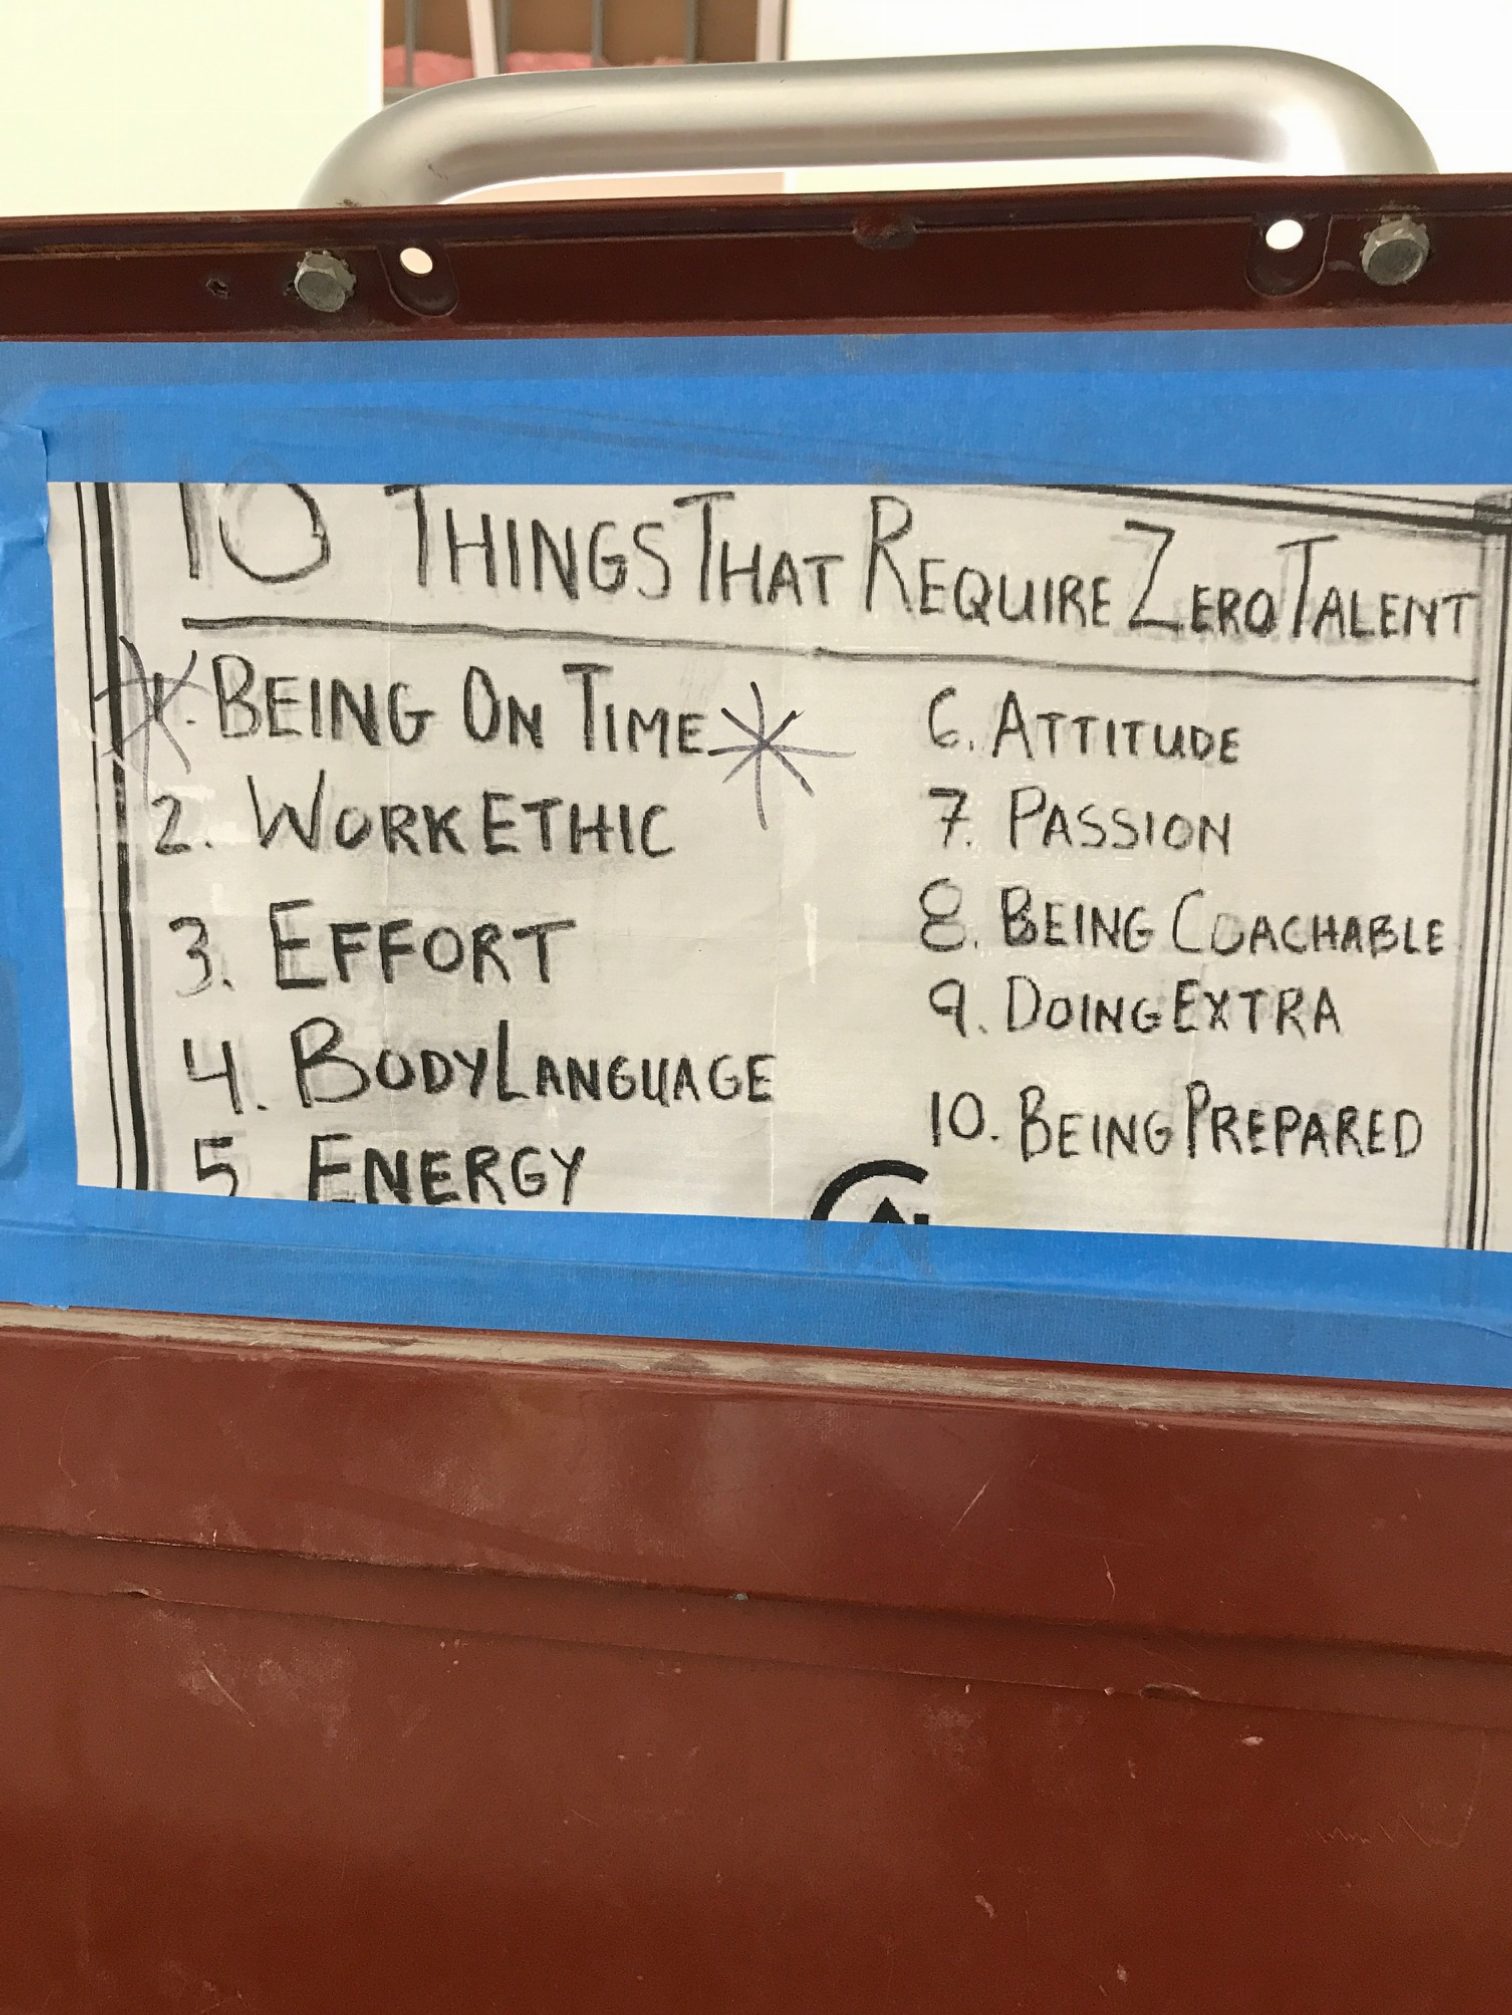 10 THINGS THAT REQUIRE ZERO TALENT
1. BEING ON TIME
2. WORK ETHIC
3. EFFORT
4. BODY LANGUAGE
5 ENERGY
6. ATTITUDE
7. PASSION
8. BEING COACHABLE
9. DOING EXTRA
10. BEING PREPARED